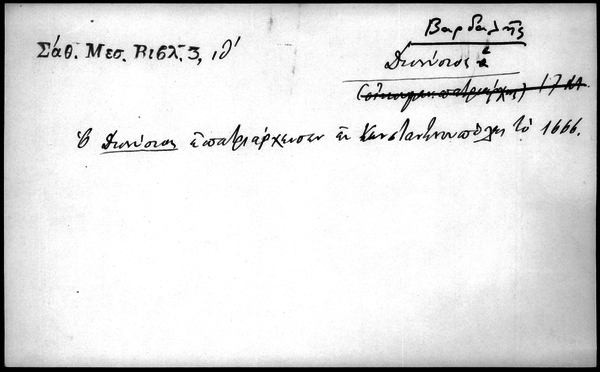 Βαρδαλῆς
Σάθ. Μεσ. Βιβλ. 3, ιθ´
Διονύσιος
(οἰκουμ. πατριάρχης) 17
Ὁ Διονύσιος ἐπατριάρχευσεν ἐν Κωνσταντινουπόλει τῷ 1666.